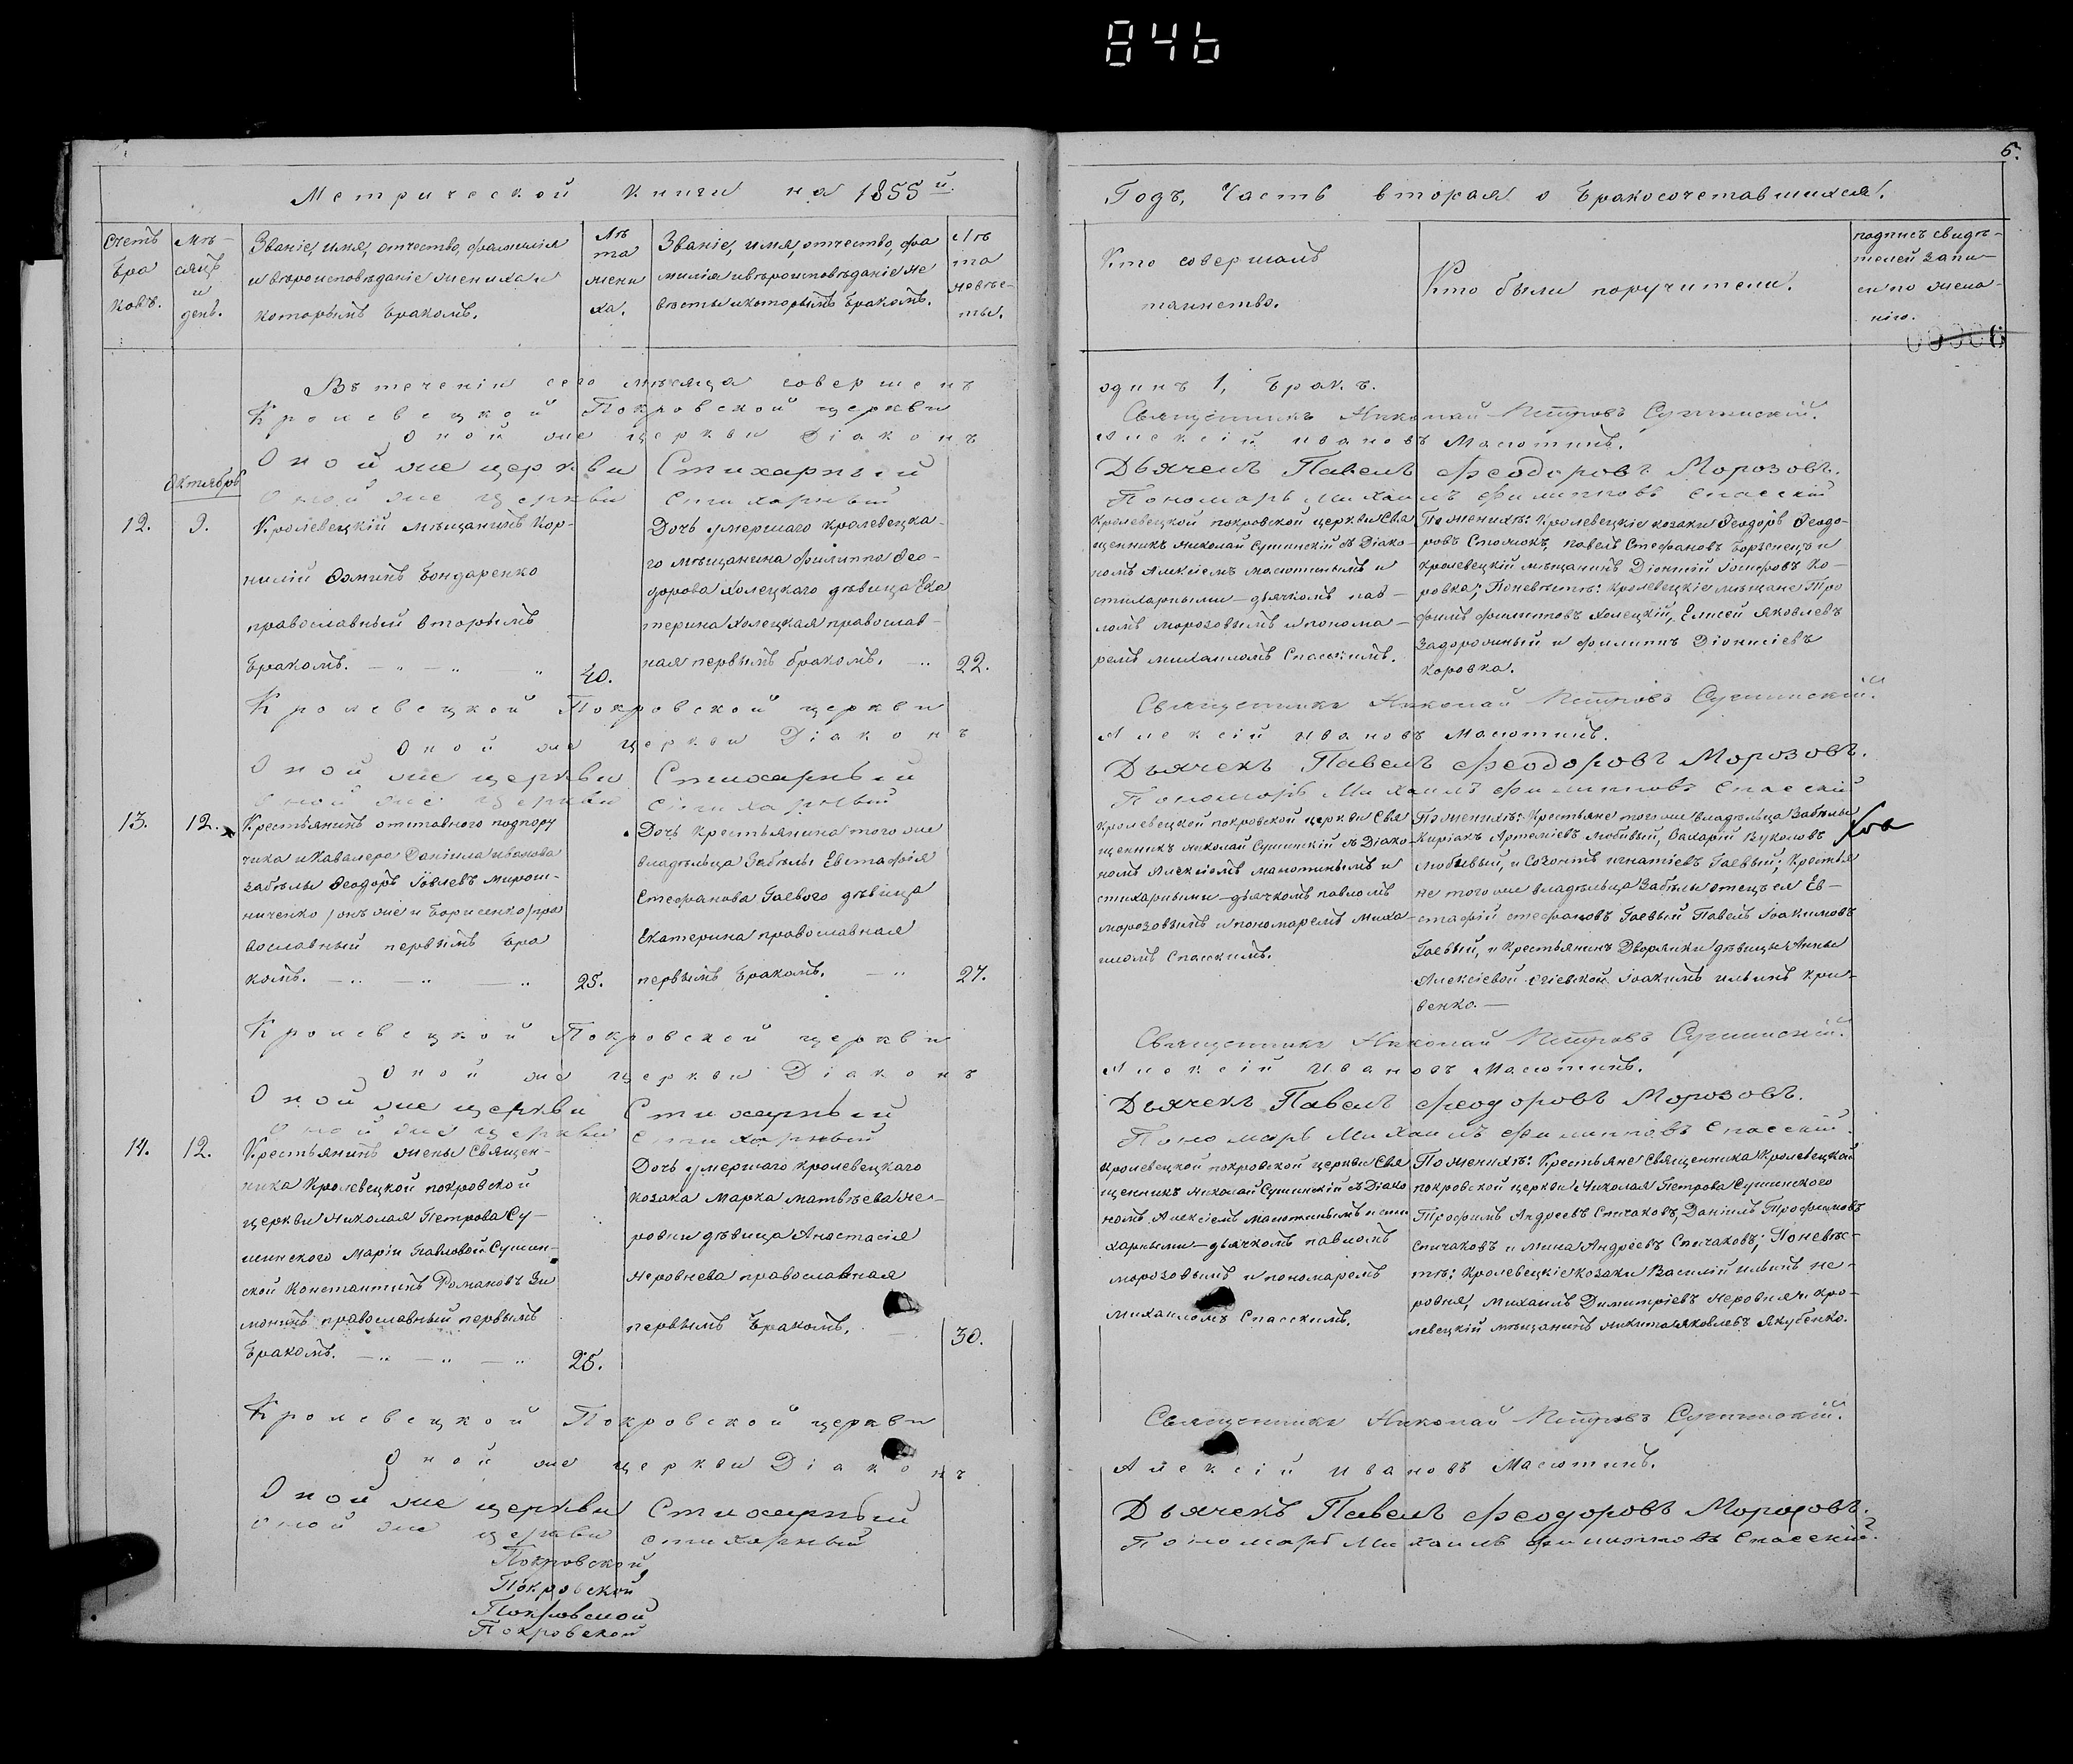 846
5.
Метрической книги на 1855й.
Годъ, Часть вторая о бракосочетавшихся.
Счетъ
бра
ковъ.
Мѣ-
сяцъ
и
день.
Званіе, имя, отчество, фамилія
и вѣроисповѣданіе жениха и
которымъ бракомъ.
Лѣ
та
жени
ха.
Званіе, имя, отчество, фа
милія и вѣроисповѣданіе не
вѣсты и которымъ бракомъ.
Лѣ
та
невѣс-
ты.
Кто совершалъ
таинство.
Кто были поручители.
подпись свидѣ-
телей запи-
си по жела-
нію.
00006
Въ теченіи сего мѣсяца совершенъ
одинъ 1, бракъ.
Кролевецкой Покровской церкви
Священникъ Николай Петровъ Сушинскій.
Оной же церкви Діаконъ
Алексій Ивановъ Масютинъ.
Оной же церкви Стихарный
Дьячекъ Павелъ Феодоровъ Морозовъ.
Оной же церкви стихарный
Пономарь Михаилъ Филипповъ Спасскій
Октябрь
12.
9.
Кролевецкій мѣщанинъ Кор-
нилій Фоминъ Бондаренко
православный вторымъ
бракомъ.
40.
Дочь умершаго кролевецка-
го мѣщанина Филиппа Фео-
дорова Холецкаго дѣвица Ека
терина Холецкая православ-
ная первымъ бракомъ.
22.
Кролевецкой покровской церкви Свя
щенникъ Николай Сушинскій съ Діако-
номъ Алексіемъ Масютинымъ и
стихарными-дьячкомъ пав-
ломъ Морозовымъ и понома-
ремъ Михаиломъ Спасскимъ.
По женихѣ: Кролевецкіе козаки Феодоръ Феодо-
ровъ Стомокъ, павелъ Стефановъ Борзенецъ и
кролевецкій мѣщанинъ Діонисій Іосифовъ Ко-
ровка; По невѣстѣ: Кролевецкіе мѣщане Тро
фимъ Филиповъ Холецкій, Елисей Яковлевъ
Задорожный и Филиппъ Діонисіевъ
Коровка.
Кролевецкой Покровской церкви
Священникъ Николай Петровъ Сушинскій.
Оной же церкви Діаконъ
Алексій Ивановъ Масютинъ.
Оной же церкви Стихарный
Дьячекъ Павелъ Феодоровъ Морозовъ.
Оной же церкви стихарный
Пономарь Михаилъ Филипповъ Спасскій
13.
12.
Крестьянинъ отставного подпору
чика и Кавалера Даніила Иванова
Забѣлы Феодоръ Іовлевъ Мирош-
ниченко /онъ же и Борисенко/ пра
вославный первымъ бра
комъ.
25.
Дочь крестьянина того же
владѣльца Забѣлы Евстафія
Стефанова Гаевого дѣвица
Екатерина православная
первымъ бракомъ.
27.
Кролевецкой покровской церкви Свя
щенникъ Николай Сушинскій съ Діако-
номъ Алексіемъ Масютинымъ и
стихарными-дьячкомъ павломъ
Морозовымъ и пономаремъ Миха-
иломъ Спасскимъ.
По женихѣ: Крестьяне того же владѣльца Забѣлы
Киріакъ Артеміевъ Любивый, Захарій Вуколовъ
Любивый, и Созонтъ Игнатіевъ Гаевый; Крестья
не того же владѣльца Забѣлы отецъ ея Ев-
стафій Стефановъ Гаевый Павелъ Іоакимовъ
Гаевый, и Крестьянинъ Дворянки дѣвицы Анны
Алексіевой Огіевской Іоакимъ Ильинъ Кри-
венко.
Кролевецкой Покровской церкви
Священникъ Николай Петровъ Сушинскій.
Оной же церкви Діаконъ
Алексій Ивановъ Масютинъ.
Оной же церкви Стихарный
Дьячекъ Павелъ Феодоровъ Морозовъ.
Оной же церкви стихарный
Пономарь Михаилъ Филипповъ Спасскій.
14.
12.
Крестьянинъ жены Священ-
ника Кролевецкой покровской
церкви Николая Петрова Су-
шинского Маріи Павловой Сушин-
ской Константинъ Романовъ Зи
монинъ православный первымъ
бракомъ.
25.
Дочь умершаго кролевецкаго
козака Марка Матвѣева Не-
ровни дѣвица Анастасія
Неровнева православная
первымъ бракомъ.
30.
Кролевецкой покровской церкви Свя
щенникъ Николай Сушинскій съ Діако
номъ Алексіемъ Масютинымъ и сти
харными-дьячкомъ павломъ
Морозовымъ и пономаремъ
Михаиломъ Спасскимъ.
По женихѣ: Крестьяне Священника Кролевецкой
покровской церкви Николая Петрова Сушинского
Трофимъ Андреевъ Спичаковъ, Даніилъ Трофимовъ
Спичаковъ и Мина Андреевъ Спичаковъ; По невѣс-
тѣ: Кролевецкіе козаки Василій Ильинъ Не-
ровня, Михаилъ Димитріевъ Неровня и кро-
левецкій мѣщанинъ Никита Яковлевъ Якубенко.
Кролевецкой Покровской церкви
Священникъ Николай Петровъ Сушинскій.
Оной же церкви Діаконъ
Алексій Ивановъ Масютинъ.
Оной же церкви Стихарный
Дьячекъ Павелъ Феодоровъ Морозовъ.
Оной же церкви стихарный
Пономарь Михаилъ Филипповъ Спасскій.
Покровской
Покровской
Покровской
Покровской